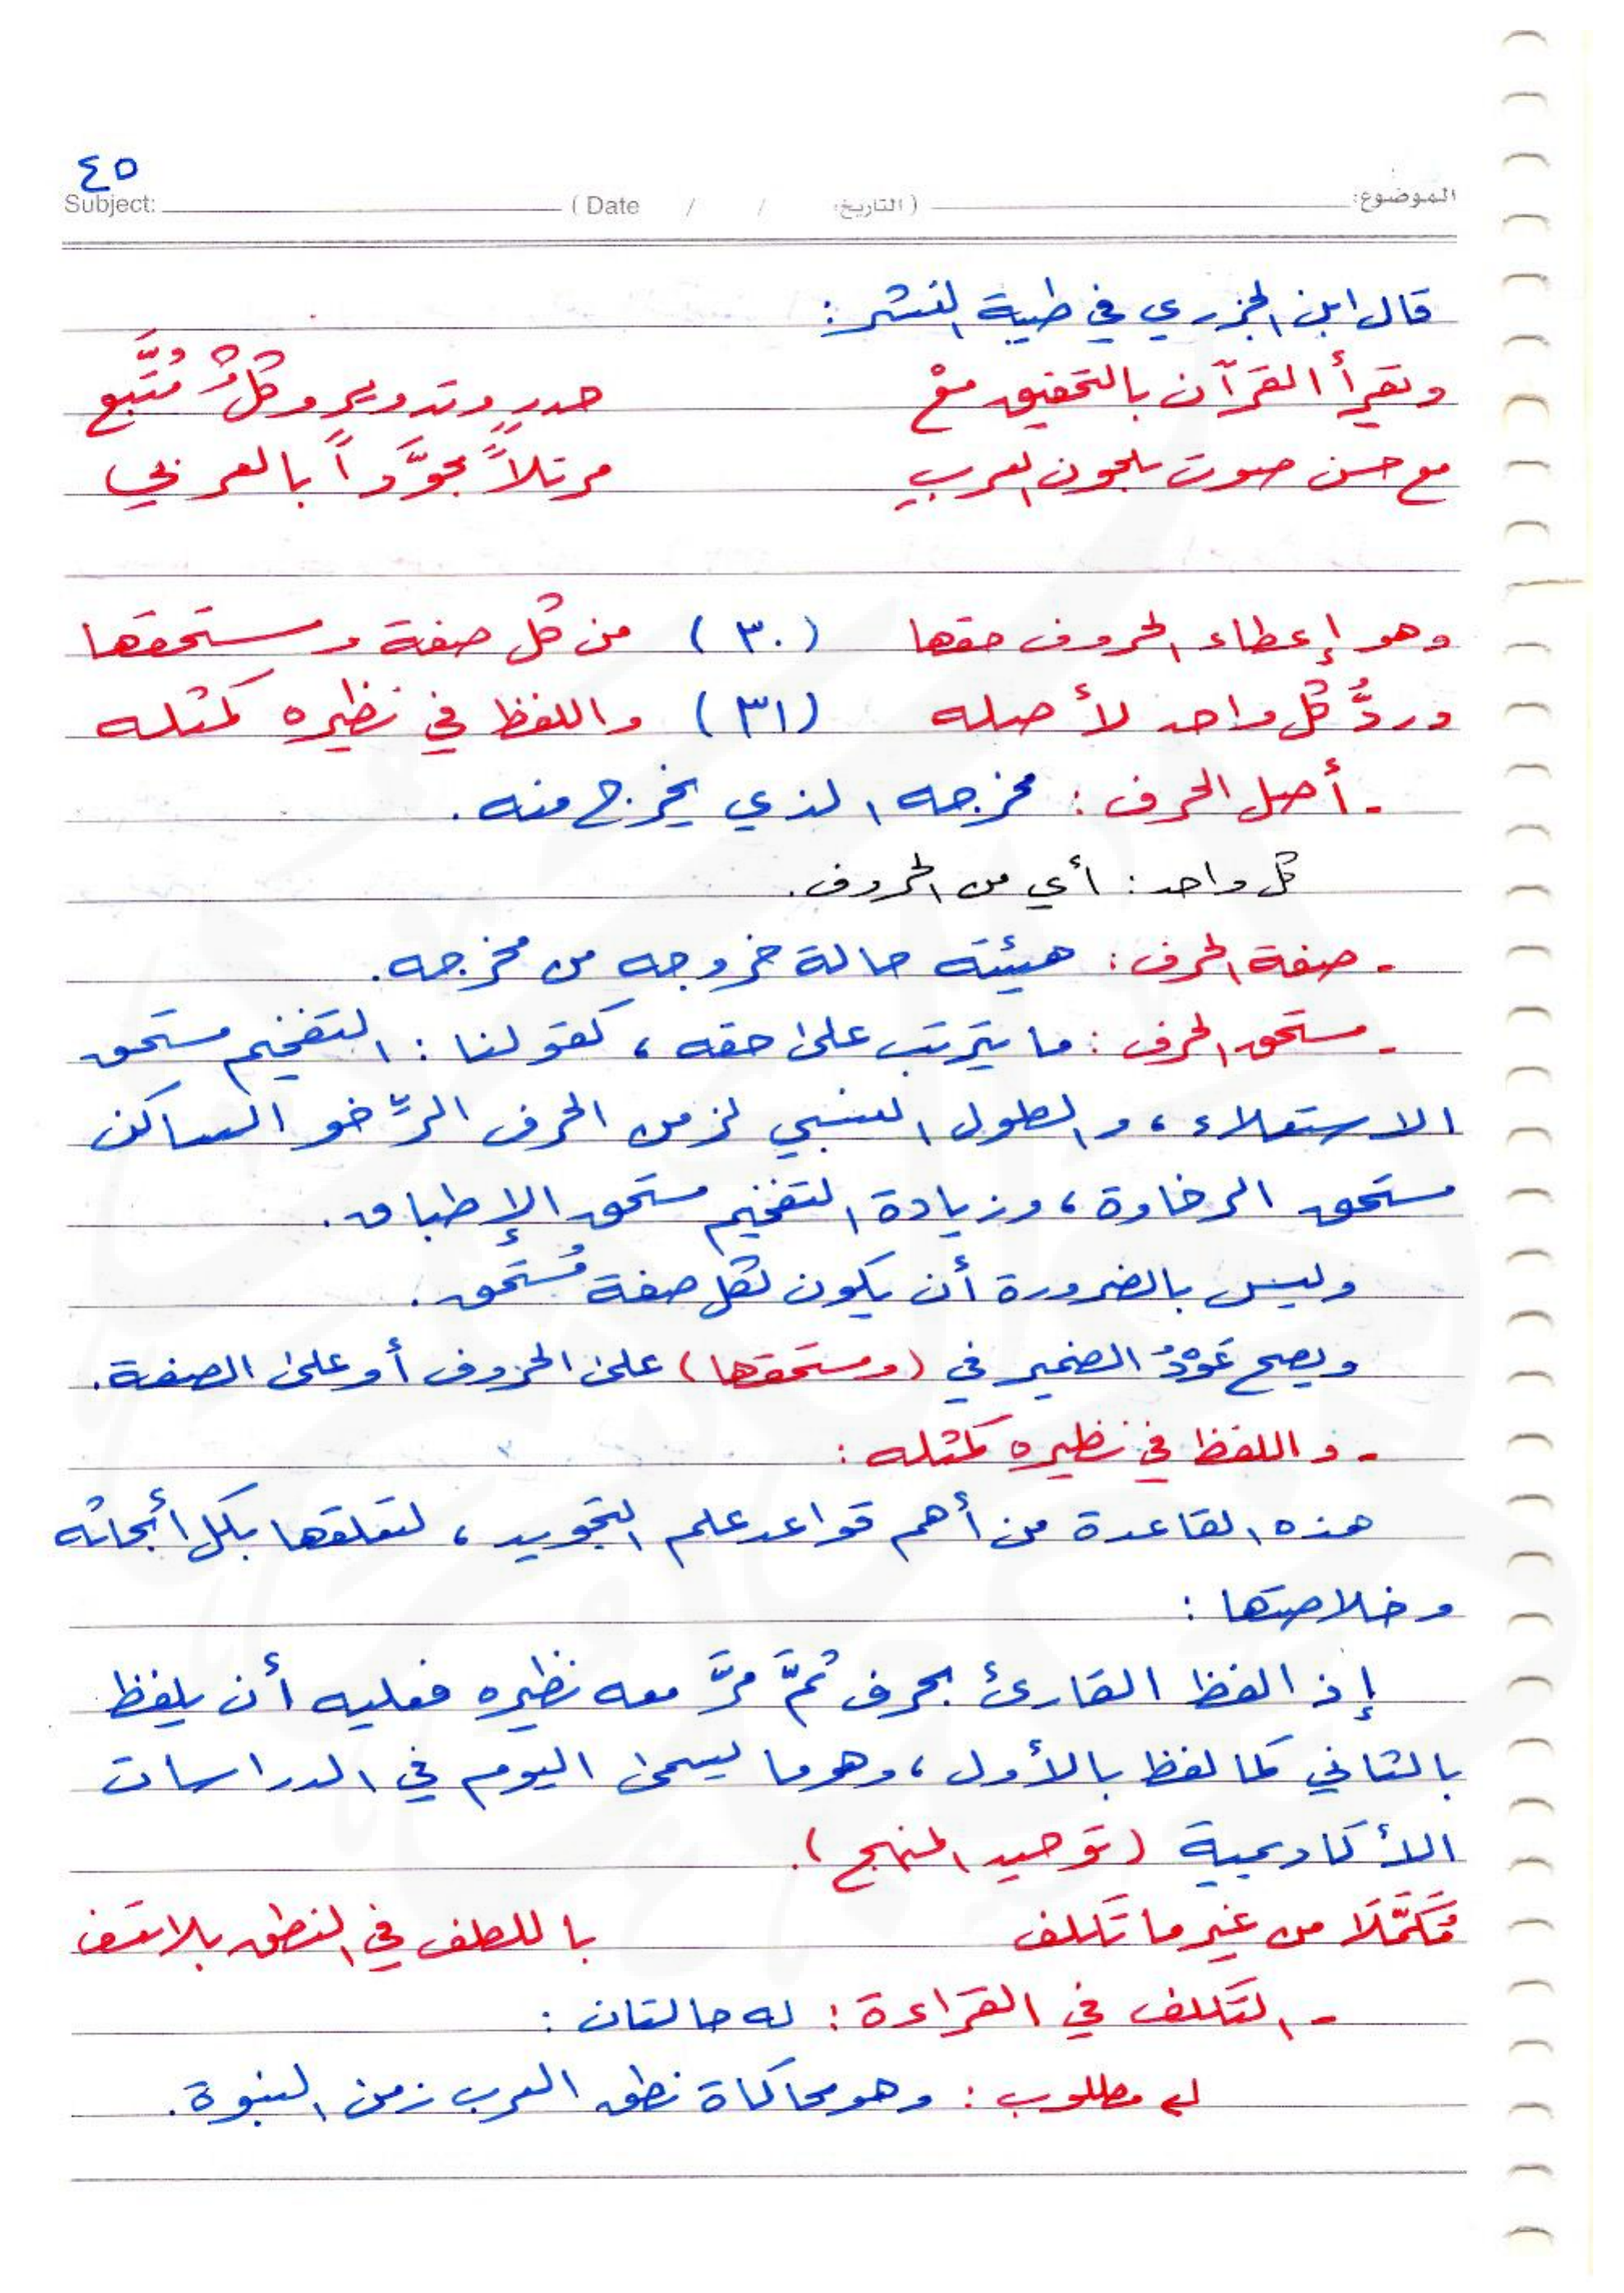 ٤٥
Subject: (Date / / التاريخ) الموضوع:
قال ابن الجزري في طيبة النشر:
ويقرأ القرآن بالتحقيق معْ حدرٍ وتدويرٍ وكلٌّ مُتَّبع
مع حسن صوت بلحون العرب مرتلاً مجوَّداً بالعربي
وهو إعطاء الحروف حقها (٣٠) من كل صفة ومستحقها
وردُّ كل واحد لأصله (٣١) واللفظ في نظيره كمثله
- أصل الحرف: مخرجه الذي يخرج منه.
كل واحد: أي من الحروف.
- صفة الحرف: هيئته حالة خروجه من مخرجه.
- مستحق الحرف: ما يترتب على حقه، كقولنا: التفخيم مستحق
الاستعلاء، والطول النسبي لزمن الحرف الرِّخو الساكن
مستحق الرخاوة، وزيادة التفخيم مستحق الإطباق.
وليس بالضرورة أن يكون لكل صفة مُستَحق.
ويصح عَوْدُ الضمير في (ومستحقها) على الحروف أو على الصفة.
- واللفظ في نظيره كمثله:
هذه القاعدة من أهم قواعد علم التجويد، لتعلقها بكل أبحاثه
وخلاصتها:
إذا لفظ القارئ بحرف ثمَّ مرَّ معه نظيره فعليه أن يلفظ
بالثاني كما لفظ بالأول، وهو ما يسمى اليوم في الدراسات
الأكاديمية (توحيد المنهج).
مُكَمَّلَا من غير ما تَكلف باللطف في النطق بلا تعسف
- التكلف في القراءة: له حالتان:
↳ مطلوب: وهو محاكاة نطق العرب زمن النبوة.